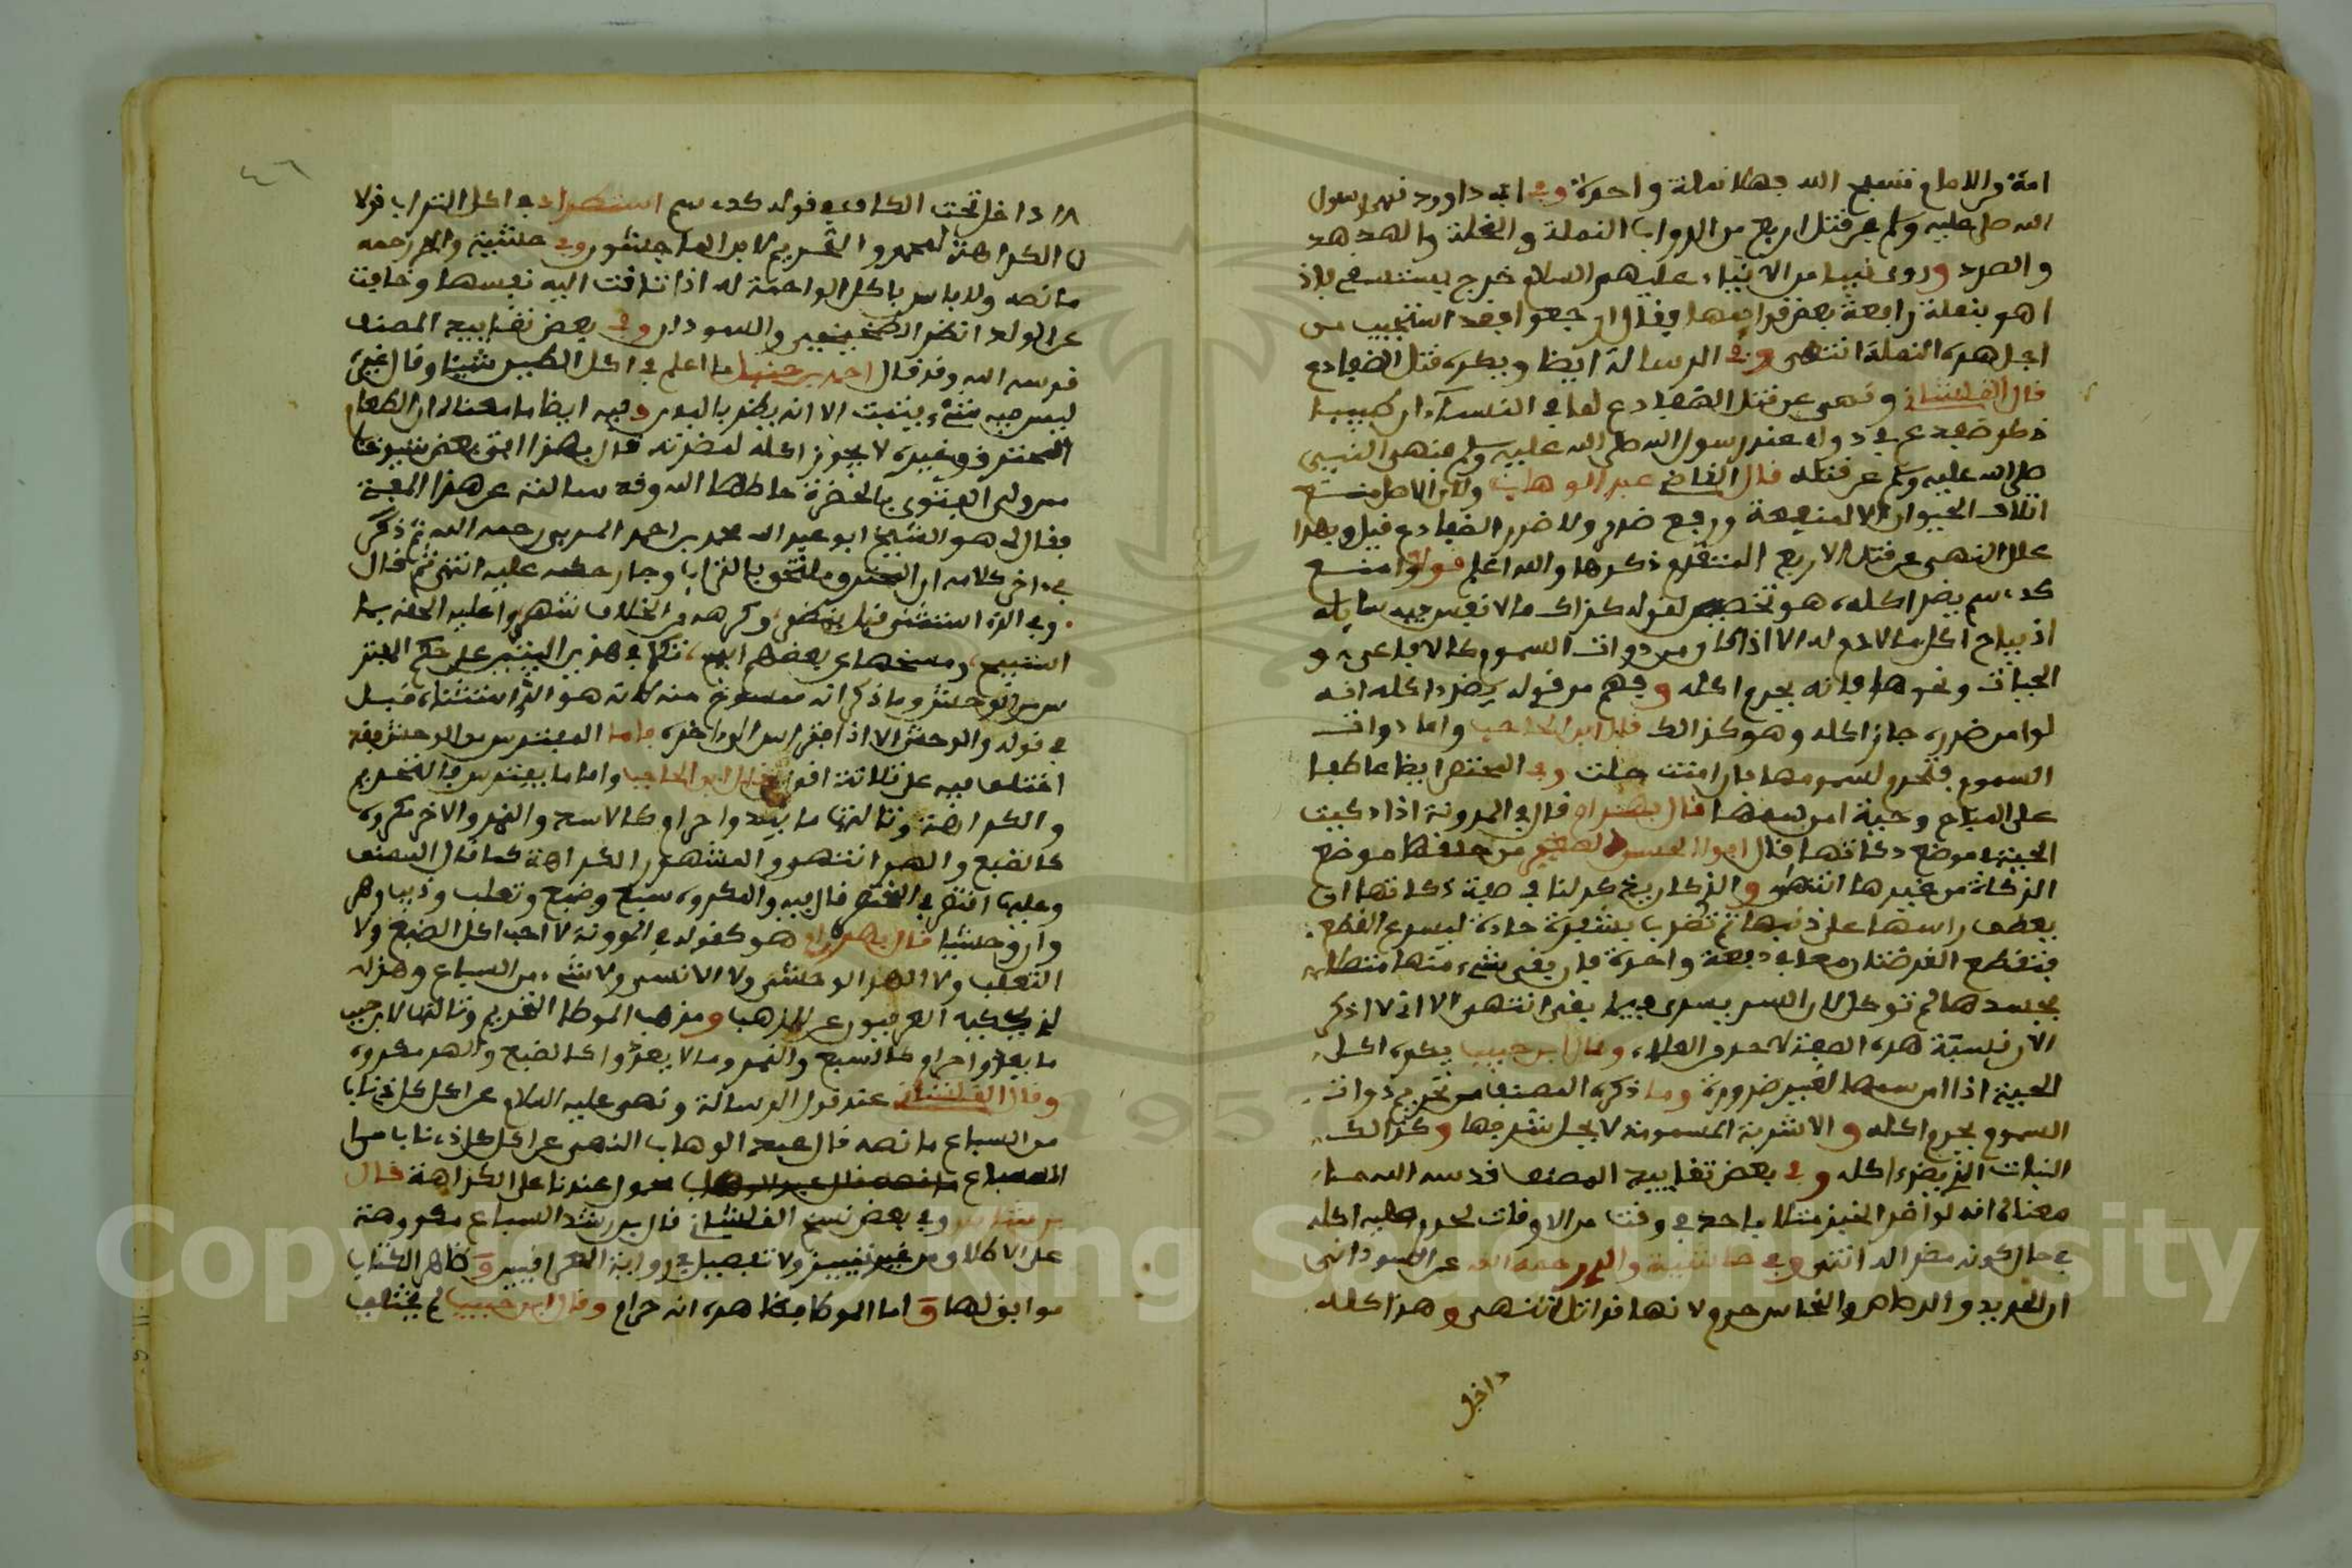 امة من الامم تسبح الله جهلا نملة واحدة وفي ابي داوود نهى رسول
الله صلى عليه وسلم عن قتل اربع من الدواب النملة والنحلة والهدهد
والصرد وروى نبيا من الانبياء عليهم السلام خرج يستسقي فاذا
هو بنملة رافعة بعض قوايمها فقال ارجعوا فقد استجيب من
اجل هذه النملة انتهى وفي الرسالة ايضا ويكره قتل الضفادع
قال القلشاني ونهى عن قتل الضفادع لما في النساءي ان طبيبا
ذكر ضفدع في دواء عند رسول الله صلى الله عليه وسلم فنهى النبي
صلى الله عليه وسلم عن قتله قال القاضي عبد الوهاب ولان الاصل منع
اتلاف الحيوان الا لمنفعة ودفع ضرر ولا ضرر الضفادع قيل وبهذا
علل النهي عن قتل الاربع المتقدم ذكرها والله اعلم قوله وامنع
كذي سم يضر اكله هو تخصيص لقوله كذاك ما لا نفس فيه سايله
اذ يباح اكل ما لا دم له الا اذا كان من ذوات السموم كالافاعي و
الحيات ونحوها فانه يحرم اكله وفهم من قوله يضر اكله انه
لو امن ضرره جاز اكله وهو كذالك قال ابن الحاجب واما ذوات
السموم فتحرم لسمومها فان امنت حلت وفي المختصر ايضا عاطفا
على المباح وحية امن سمها قال بهرام قال في المدونة اذا ذكيت
الحية في موضع ذكاتها قال ابو الحسن الصغير من حلقها موضع
الزكاة من غيرها انتهى والذكار يخ كر لنا في صية ذكاتها ان
يعطف راسها على ذنبها ثم تضرب بشفرة حادة ليسرع القطع
فتقطع الفرضتان معا في دبعة واحدة فان بقي شيء منها متصل
بجسدها لم توكل لان السم يسري فيما بقي انتهى الا اني لا اذكر
الان نسبة هذه الصفة لاحد من العلماء وقال ابن حبيب يكره اكل
الحية اذا امن سمها لغير ضرورة وما ذكره المصنف من تحريم ذوات
السموم يحرم اكله والاشربة المسمومة لا يحل شربها وكذالك
النبات الذي يضر اكله وفي بعض تقاييد المصنف قدسه الله مما
معناه انه لو اضر الخبز مثلا باحد في وقت من الاوقات لحرم عليه اكله
في حال كونه مضرا له انتهى وفي حاشية والدي رحمه الله عن السوداني
ان الحديد والرصاص والنحاس حرم لانها قواتل انتهى وهذا كله
داخل
داخل تحت الكاف في قوله كذي سم استطراد في اكل التراب قولا
ن الكراهة لمحمد والتحريم لابن الماجشون وفي حاشية والدي رحمه
ما نصه ولا باس باكل الواحمة له اذا تاقت اليه نفسها وخافت
على الولد انظر الصغير والسوداني وفي بعض تقاييد المصنف
قدسه الله وقد قال احمد بن حنبل ما اعلم في اكل الطين شيئا وقال غيره
ليس فيه شيء يثبت الا انه يضر بالبدن وفيه ايضا ما معناه ان الطعام
المحترق وغيره لا يجوز اكله لمضرته قال بهذا افتى بعض شيوخنا
ممن ولي الفتوى بالحضرة حاطها الله وقد سالته عن هذا المفتي
فقال لي هو الشيخ ابو عبد الله محمد بن احمد المري رحمه الله ثم ذكر
في اخر كلامه ان المحترق ملحق بالتراب وجار حكمه عليه انتهى ثم قال
وفي الذي استثني قبل ينظر وكرهه من الخلاف شهر واعليه الحق بما
استبيح ومسخها عن بعضهم ابيح تكلم في هذين البيتين على حكم المفتر
س من الوحش وما ذكر انه ممسوخ منه كانه هو الذي استثناه قبل
في قوله والوحش الا اذا افترس الى اخره فاما المفترس من الوحش فقد
اختلف فيه على ثلاثة اقوال قال ابن الحاجب واما ما يفترس فالتحريم
والكراهة وثالثها ما يعدوا حرام كالاسد والنمر والاخر مكروه
كالضبع والهر انتهى والمشهور الكراهة كما قال المصنف
وعليه اقتصر في المختصر قال فيه والمكروه سبع وضبع وثعلب وذيب وهر
وان وحشيا قال بهرام هو كقوله في المدونة لا احب اكل الضبع ولا
الثعلب ولا الهر الوحشي ولا الانسي ولا شيء من السباع وهذا
لم يحكيه العراقيون عن المذهب ومذهب الموطا التحريم وثالثها لابن حبيب
ما يعدوا حرام كالسبع والنمر وما لا يعدوا كالضبع والهر مكروه
وقال القلشاني عند قول الرسالة ونهى عليه السلام عن اكل كل ذي ناب
من السباع ما نصه قال عبد الوهاب النهي عن اكل كل ذي ناب من ا
السباع ما نصه قال عبد الوهاب محمول عندنا على الكراهة قال
وفي بعض نسخ القلشاني قال بن رشد السباع مكروهة
على الاطلاق من غير تمييز ولا تفصيل في رواية العراقيين وظاهر الكتاب
موافق لها واما الموطا فظاهره انه حرام وقال ابن حبيب لم يختلف